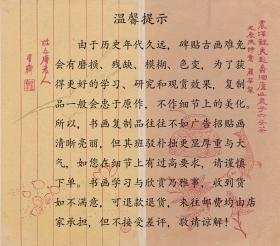 温馨提示
由于历史年代久远，碑贴古画难免
会有磨损、残缺、模糊、色变，为了获
得更好的学习、研究和观赏效果，复制
品一般会忠于原作，不作细节上的美化。
所以，书画复制品往往不如广告招贴画
清晰亮丽，但其斑驳朴拙更显厚重与大
气，如您在细节上有过高要求，请谨慎
下单。书画学习与欣赏乃雅事，收到货
如不满意，可退款退货，来往邮费均由店
家承担，但不接受差评，敬请谅解！